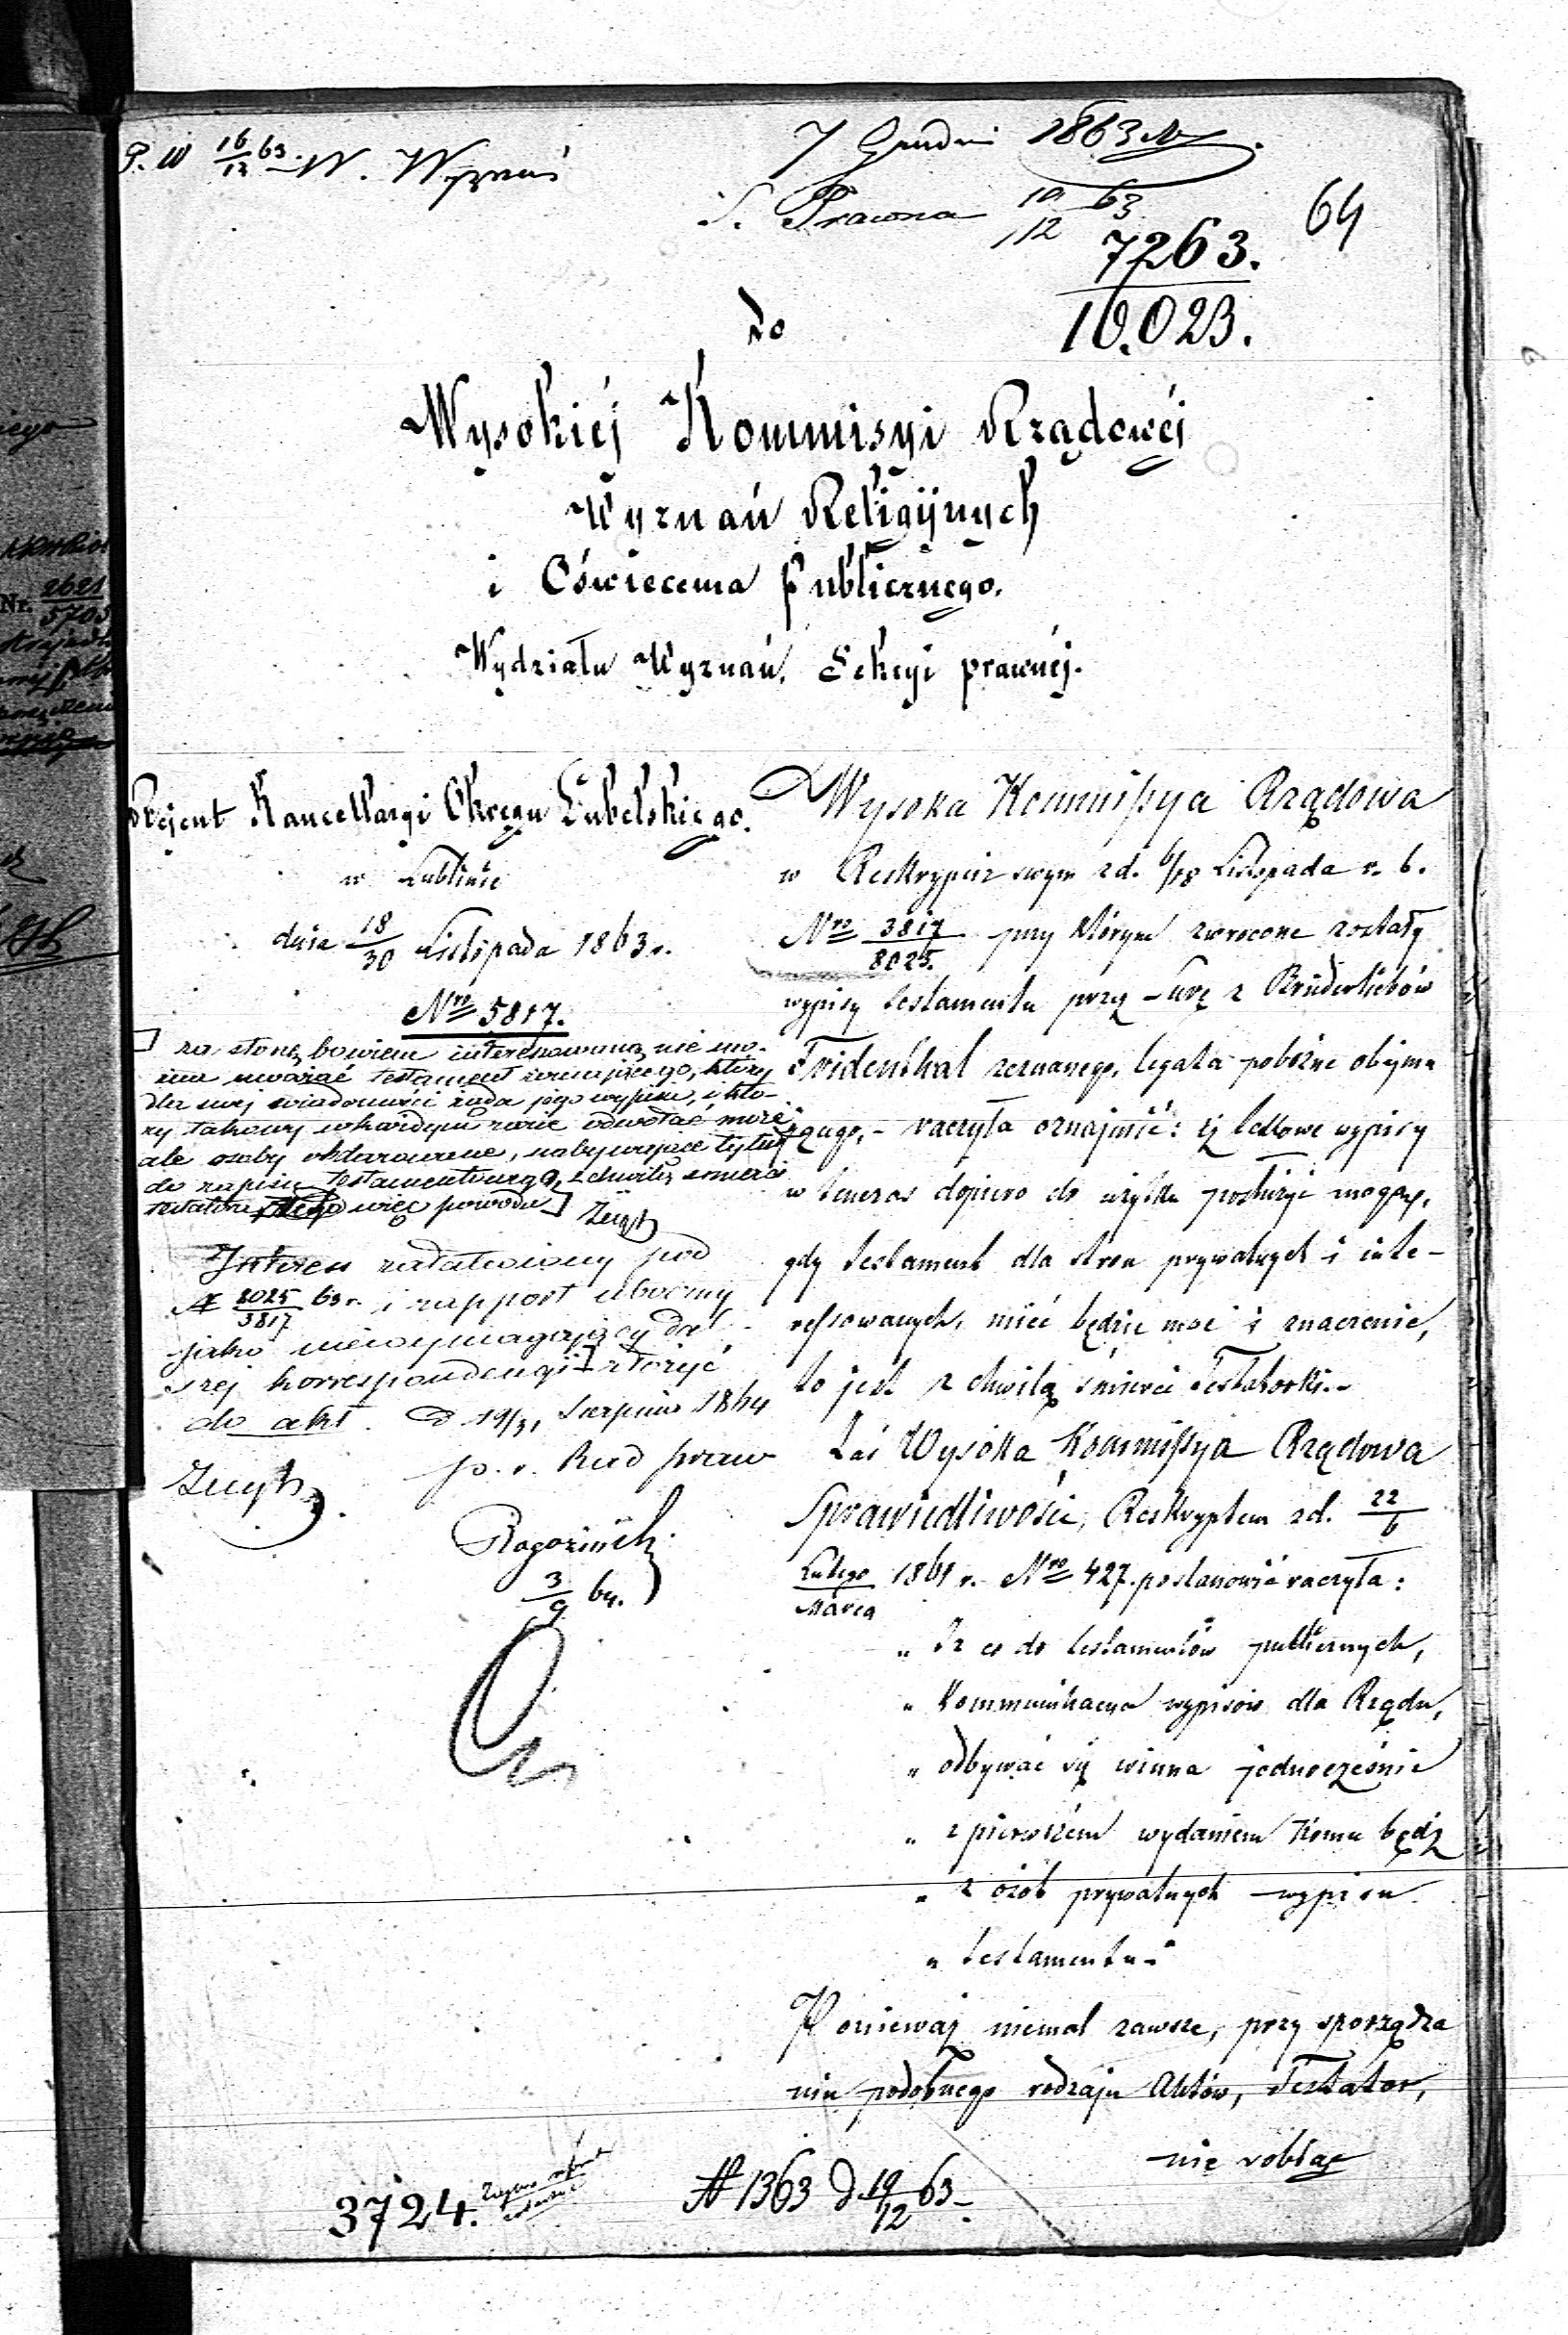 P. W 16/12 63. W. Wyznań
7 Grudni 1863
S. Prawna 10/12 63
64
7263.
10.023.
Do
Wysokiej Kommisyi Rządowéj
Wyznań Religijnych
i Oświecenia Publicznego.
Wydziału Wyznań, Sekcyi prawnéj.
Rejent Kancellaryi Okręgu Lubelskiego.
w Lublinie
dnia 18/30 Listopada 1863 r.
Nro 5817.
za stronę bowiem interessowaną nie mo-
żna uważać testament czyniącego, który
dla swej wiadomości żąda jego wypisu, i któ-
ry takowy w każdym razie odwołać może,
ale osoby obdarowane, nabywające tytuł
do zapisu testamentowego, z chwilą śmierci
testatora więc powodu
Interes załatwiony pod
№ 8025/3817 63 r. i rapport uboczny
jako niewymagający dal-
szej korrespondencyi złożyć
do akt. d 19/31 Sierpnia 1864
p. o. Rad praw
3/9 64.
Wysoka Kommissya Rządowa
w Reskrypcie swym z d. 6/18 Listopada r. b.
Nro 3817/8025. przy którym zwrócone zostały
wypisy testamentu przez Surę z Bruderliebów
Fridenthal zeznanego, legata pobożne obejmu
jącego, – raczyła oznajmić: iż takowe wypisy
w tenczas dopiero do użytku posłużyć mogą,
gdy testament dla stron prywatnych i inte-
ressowanych, mieć będzie moc i znaczenie,
to jest z chwilą śmierci Testatorki. –
Zaś Wysoka Kommissya Rządowa
Sprawiedliwości, Reskryptem z d. 22/6
Lutego/Marca 1861 r. Nro 427. postanowić raczyła:
„ Iż co do testamentów publicznych,
„ Kommunikacya wypisów dla Rządu,
„ odbywać się winna jednocześnie
„ z pierwszém wydaniem komu bądź
„ z osób prywatnych wypisu
„ testamentu –"
Ponieważ niemal zawsze, przy sporządza
niu podobnego rodzaju Aktów, Testator,
nie robiąc
3724.
№ 1363 d 19/12 63 –